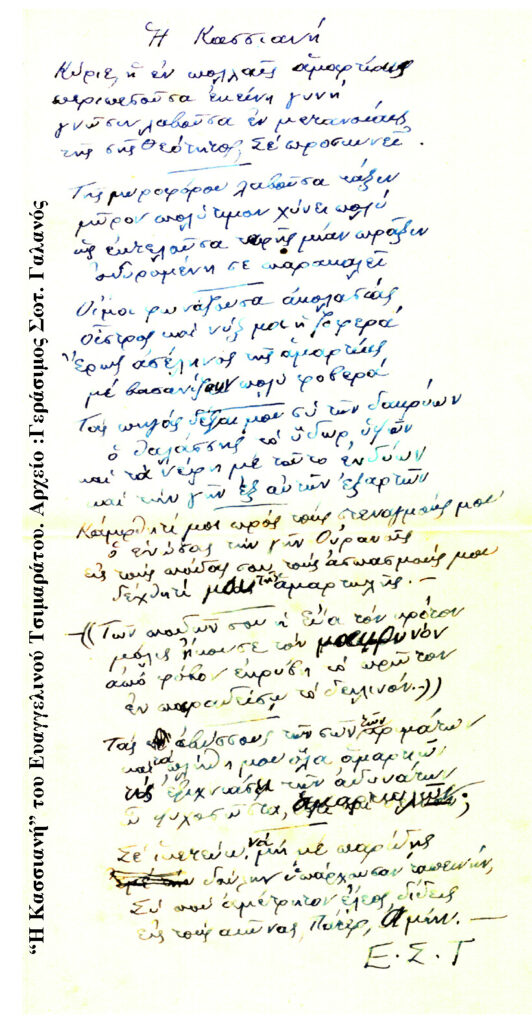 Ἡ Κασσιανή
Κύριε, ἡ ἐν πολλαῖς ἁμαρτίαις
περιπεσοῦσα ἐκείνη γυνή
γνῶσιν λαβοῦσα ἐν μετανοίαις
τῆς σῆς Θεότητος, Σέ προσκυνεῖ.
Τῆς μυροφόρου λαβοῦσα τάξιν
μῦρον πολύτιμον χύνει πολύ
ὡς ἐκτελοῦσα ταφῆς μίαν πρᾶξιν
ὀδυρομένη σέ παρακαλεῖ
Οἴμοι φωνάζουσα ἀκολασίας
οἶστρος καί νύξ μοι ἡ ζοφερά
Ἔρως ἀσέληνος τῆς ἁμαρτίας
μέ βασανίζουν πολύ φοβερά
Τάς πηγάς δέξαι μου σύ τῶν δακρύων
ὁ θαλάσσης τό ὕδωρ
καί τά νέφη μέ τοῦτο ἐνδύων
καί τήν γῆν ἐξ αὐτῶν ἐξαρτῶν
Κάμφθητί μοι πρός τούς στεναγμούς μου
ὁ τήν γῆν Οὐρανοῖς
εἰς τούς πόδας σου τούς ἀσπασμούς μου
δέχθητί μου τῆς ἁμαρτωλῆς. —
—((Τῶν ποδῶν σου ἡ Εὔα τόν κρότον
μόλις ἤκουσε τόν μακρυνόν
ἀπό φόβον ἐκρύβη τό πρῶτον
ἐν παραδείσῳ τό δειλινόν..))
Τάς ἀβύσσους τῶν σῶν τῶν κριμάτων
καί τά πλήθη μου ὅλα ἁμαρτιῶν
τίς ἐξιχνιάσει τῶν ἀδυνάτων
ὦ ψυχοσῶστα,
Σέ ἱκετεύω, νά μή μέ παρίδῃς
δούλην ὑπάρχουσαν ταπεινήν,
Σύ πού ἀμέτρητον ἔλεος δίδεις
εἰς τούς αἰῶνας, Πάτερ, Ἀμήν. —
Ε. Σ. Τ
“Η Κασσιανή” του Ευαγγελινού Τσιμαράτου. Αρχείο :Γεράσιμος Σωτ. Γαλανός